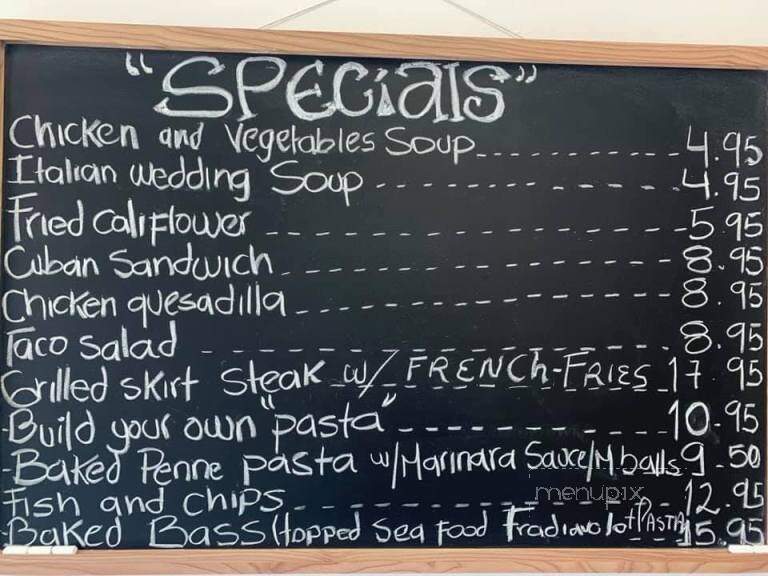 "SPECIALS"
Chicken and Vegetables Soup 4.95
Italian wedding Soup 4.95
Fried califlower 5.95
Cuban Sandwich 8.95
Chicken quesadilla 8.95
Taco salad 8.95
Grilled skirt steak w/ FRENCH-FRIES 17.95
-Build your own "pasta" 10.95
-Baked Penne pasta w/Marinara Sauce/M balls 9.50
menupix
Fish and chips 12.95
-Baked Bass (topped Sea Food Fradiavolo + PASTA 15.95